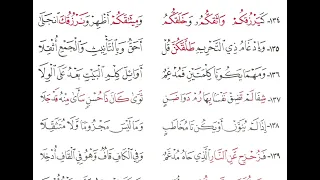 ١٣٤- كَيَرْزُقكُّمُ وَاثَقكُّمُ وَخَلَقكُّمُ وَمِيثَاقَكُمْ أَظْهِرْ وَنَرْزُقُكَ انْجَلَى
١٣٥- وَإِدْغَامُ ذِي التَّحْرِيمِ طَلَّقَكُنَّ قُلْ أَحَقُّ وَبِالتَّأْنِيثِ وَالْجَمْعِ أُثْقِلَا
١٣٦- وَمَهْمَا يَكُونَا كِلْمَتَيْنِ فَمُدْغِمٌ أَوَائِلَ كِلْمِ الْبَيْتِ بَعْدُ عَلَى الْوِلَا
١٣٧- شِفَا لَمْ تَضِقْ نَفْسًا بِهَا رُمْ دَوَا ضَنٍ ثَوَى كَانَ ذَا حُسْنٍ سَأَى مِنْهُ قَدْ جَلَا
١٣٨- إِذَا لَمْ يُنَوَّنْ أَوْ يَكُنْ تَا مُخَاطَبٍ وَمَا لَيْسَ مَجْزُومًا وَلَا مُتَثَقِّلَا
١٣٩- فَزُحْزِحَ عَنِ النَّارِ الَّذِي حَاهُ مُدْغَمٌ وَفِي الْكَافِ قَافٌ وَهُوَ فِي الْقَافِ أُدْخِلَا